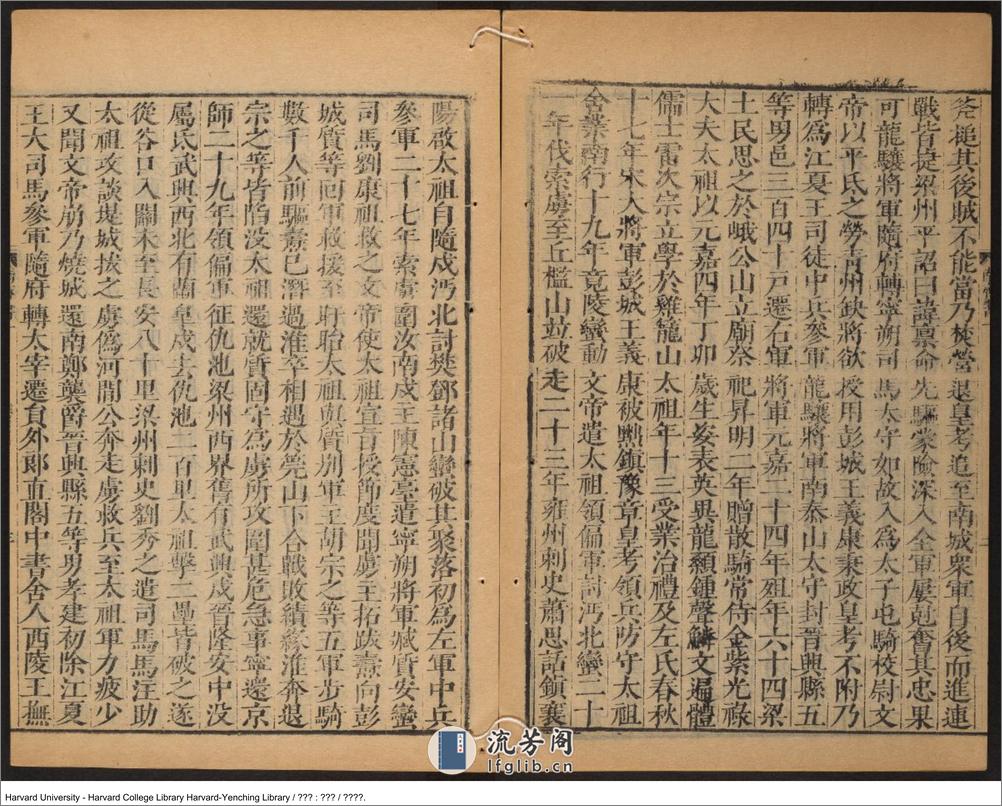 斧槌其後賊不能當乃焚營退皇考追至南城衆軍自後而進連
戰皆捷梁州平詔曰諱稟命先驅蒙險深入全軍屢剋奮其忠果
可龍驤將軍隨府轉寧朔司馬太守如故入爲太子屯騎校尉文
帝以平氏之勞青州缺將欲授用彭城王義康秉政皇考不附乃
轉爲江夏王司徒中兵參軍龍驤將軍南泰山太守封晉興縣五
等男邑三百四十戸遷右軍將軍元嘉二十四年殂年六十四梁
土民思之於峨公山立廟祭祀昇明二年贈散騎常侍金紫光祿
大夫太祖以元嘉四年丁卯歲生姿表英異龍顙鍾聲鱗文遍體
儒士雷次宗立學於雞籠山太祖年十三受業治禮及左氏春秋
十七年宋大將軍彭城王義康被黜鎮豫章皇考領兵防守太祖
舍業南行十九年竟陵蠻動文帝遣太祖領偏軍討沔北蠻二十
一年伐索虜至丘檻山並破走二十三年雍州刺史蕭思話鎮襄
陽啟太祖自隨戍沔北討樊鄧諸山蠻破其聚落初爲左軍中兵
參軍二十七年索虜圍汝南戍主陳憲臺遣寧朔將軍臧質安蠻
司馬劉康祖救之文帝使太祖宣旨授節度聞虜主拓跋燾向彭
城質等回軍救援至盱眙太祖與質別軍主胡宗之等五軍步騎
數千人前驅燾已潛過淮卒相遇於莞山下合戰敗績緣淮奔退
宗之等皆陷沒太祖還就質固守爲虜所攻圍甚危急事寧還京
師二十九年領偏軍征仇池梁州西界舊有武興戍晉隆安中沒
屬氐武興西北有蘭皐戍去仇池二百里太祖擊二壘皆破之遂
從谷口入關未至長安八十里梁州刺史劉秀之遣司馬馬注助
太祖攻談堤城拔之虜僞河間公奔走虜救兵至太祖軍力疲少
又聞文帝崩乃燒城還南鄭襲爵晉興縣五等男孝建初除江夏
王大司馬參軍隨府轉太宰遷員外郎直閣中書舍人西陵王撫
流芳阁
lfglib.cn
Harvard University - Harvard College Library Harvard-Yenching Library / ??? : ??? / ????.